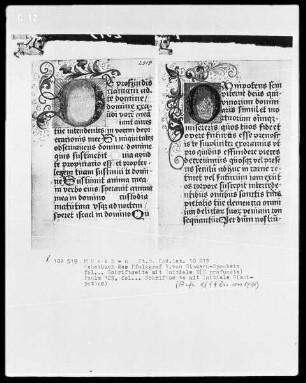 C 12
2919
De profundis
clamavi ad
te domine
domine exau
di vocem
meam fiant aures
tue intendentes in vocem dep
cationis mee Si iniquitates
observaveris domine domine
quis sustinebit Quia apud
te propitiatio est et propter
legem tuam sustinui te domine
Sustinuit anima mea
in verbo eius speravit anima
mea in domino custodia
matutina usque ad noctem
speret israel in domino Qu
Omnipotens sem
piterne deus qui
vivorum domin
aris simul et mor
tuorum omniumque
misereris quos tuos fide et
opere futuros esse prenosc
te supplices exoramus ut
pro quibus effundere preces
decrevimus quosque vel presens
seculum adhuc in carne reti
net vel futurum iam exu
tos corpore suscepit interceden
tibus omnibus sanctis tuis
pietatis tue clementia omni
um delictorum suorum veniam con
sequantur Per dominum
R 102 919 München St.B. Cod.lat. 10 019
Gebetbuch des Pfalzgraf
fol.. Schriftseite mit Initiale D(E profundis)
Psalm 129, fol... Schriftseite mit Initiale O(mni-
potens)